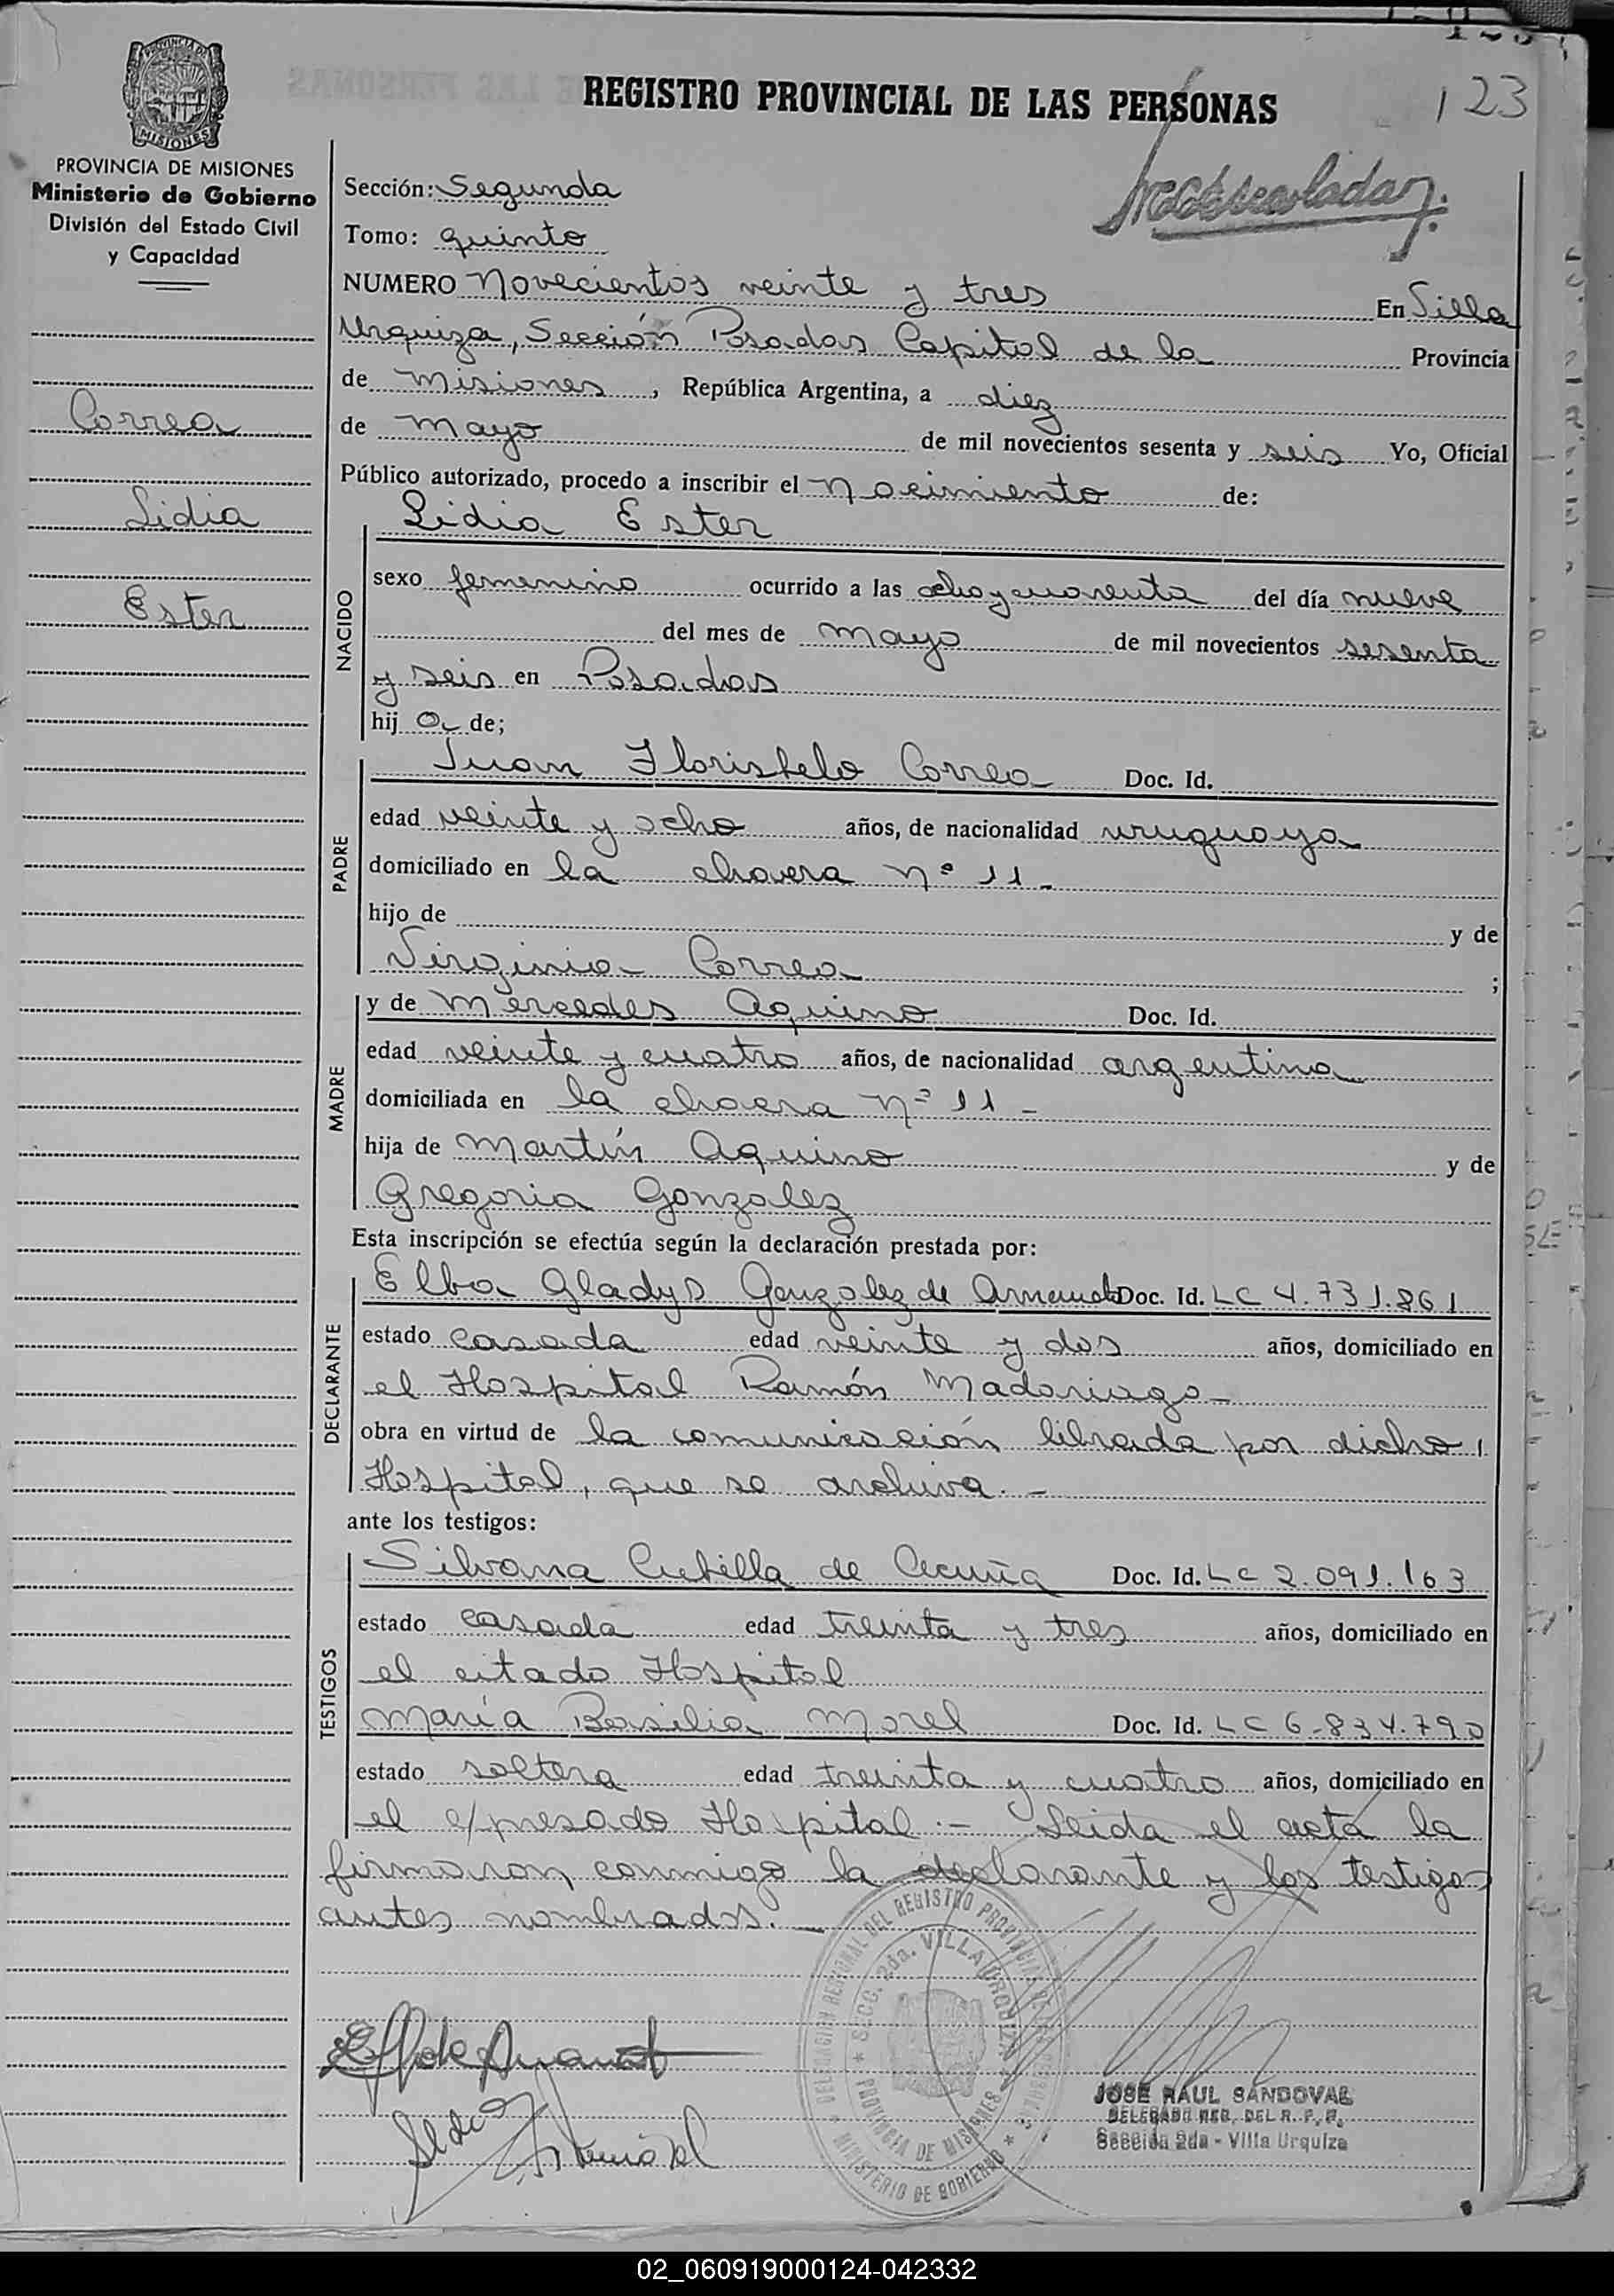 123
PROVINCIA DE
MISIONES
REGISTRO PROVINCIAL DE LAS PERSONAS
PROVINCIA DE MISIONES
Ministerio de Gobierno
División del Estado Civil
y Capacidad
Correa
Lidia
Ester
Sección: Segunda
Tomo: quinto
NUMERO Novecientos veinte y tres En Villa
Urquiza, Sección Posadas Capital de la Provincia
de Misiones, República Argentina, a diez
de mayo de mil novecientos sesenta y seis Yo, Oficial
Público autorizado, procedo a inscribir el nacimiento de:
NACIDO
Lidia Ester
sexo femenino ocurrido a las ocho y cuarenta del día nueve
del mes de mayo de mil novecientos sesenta
y seis en Posadas
hij a de;
PADRE
Juan Correa Doc. Id.
edad veinte y ocho años, de nacionalidad uruguaya
domiciliado en la chacra nº 11 -
hijo de y de
Virginia Correa ;
MADRE
y de Mercedes Aquino Doc. Id.
edad veinte y cuatro años, de nacionalidad argentina
domiciliada en la chacra nº 11 -
hija de Martín Aquino y de
Gregoria Gonzalez
Esta inscripción se efectúa según la declaración prestada por:
DECLARANTE
Elba Gladys Gonzalez de Doc. Id. LC 4.731.861
estado casada edad veinte y dos años, domiciliado en
el Hospital Ramón Madariaga -
obra en virtud de la comunicación librada por dicho
Hospital, que se archiva. -
ante los testigos:
TESTIGOS
Silvana de Acuña Doc. Id. LC 2.091.163
estado casada edad treinta y tres años, domiciliado en
el citado Hospital
María Basilia Morel Doc. Id. LC 6.834.790
estado soltera edad treinta y cuatro años, domiciliado en
el e/presado Hospital. - Leida el acta la
firmaron conmigo la declarante y los testigos
antes nombrados. -
DELEGACION REGIONAL DEL REGISTRO PROVINCIAL DE LAS PERSONAS
SECC. 2da. VILLA URQUIZA
PROVINCIA DE MISIONES
MINISTERIO DE GOBIERNO
JOSE RAUL SANDOVAL
DELEGADO REG. DEL R. P. P.
Sección 2da - Villa Urquiza
02_060919000124-042332